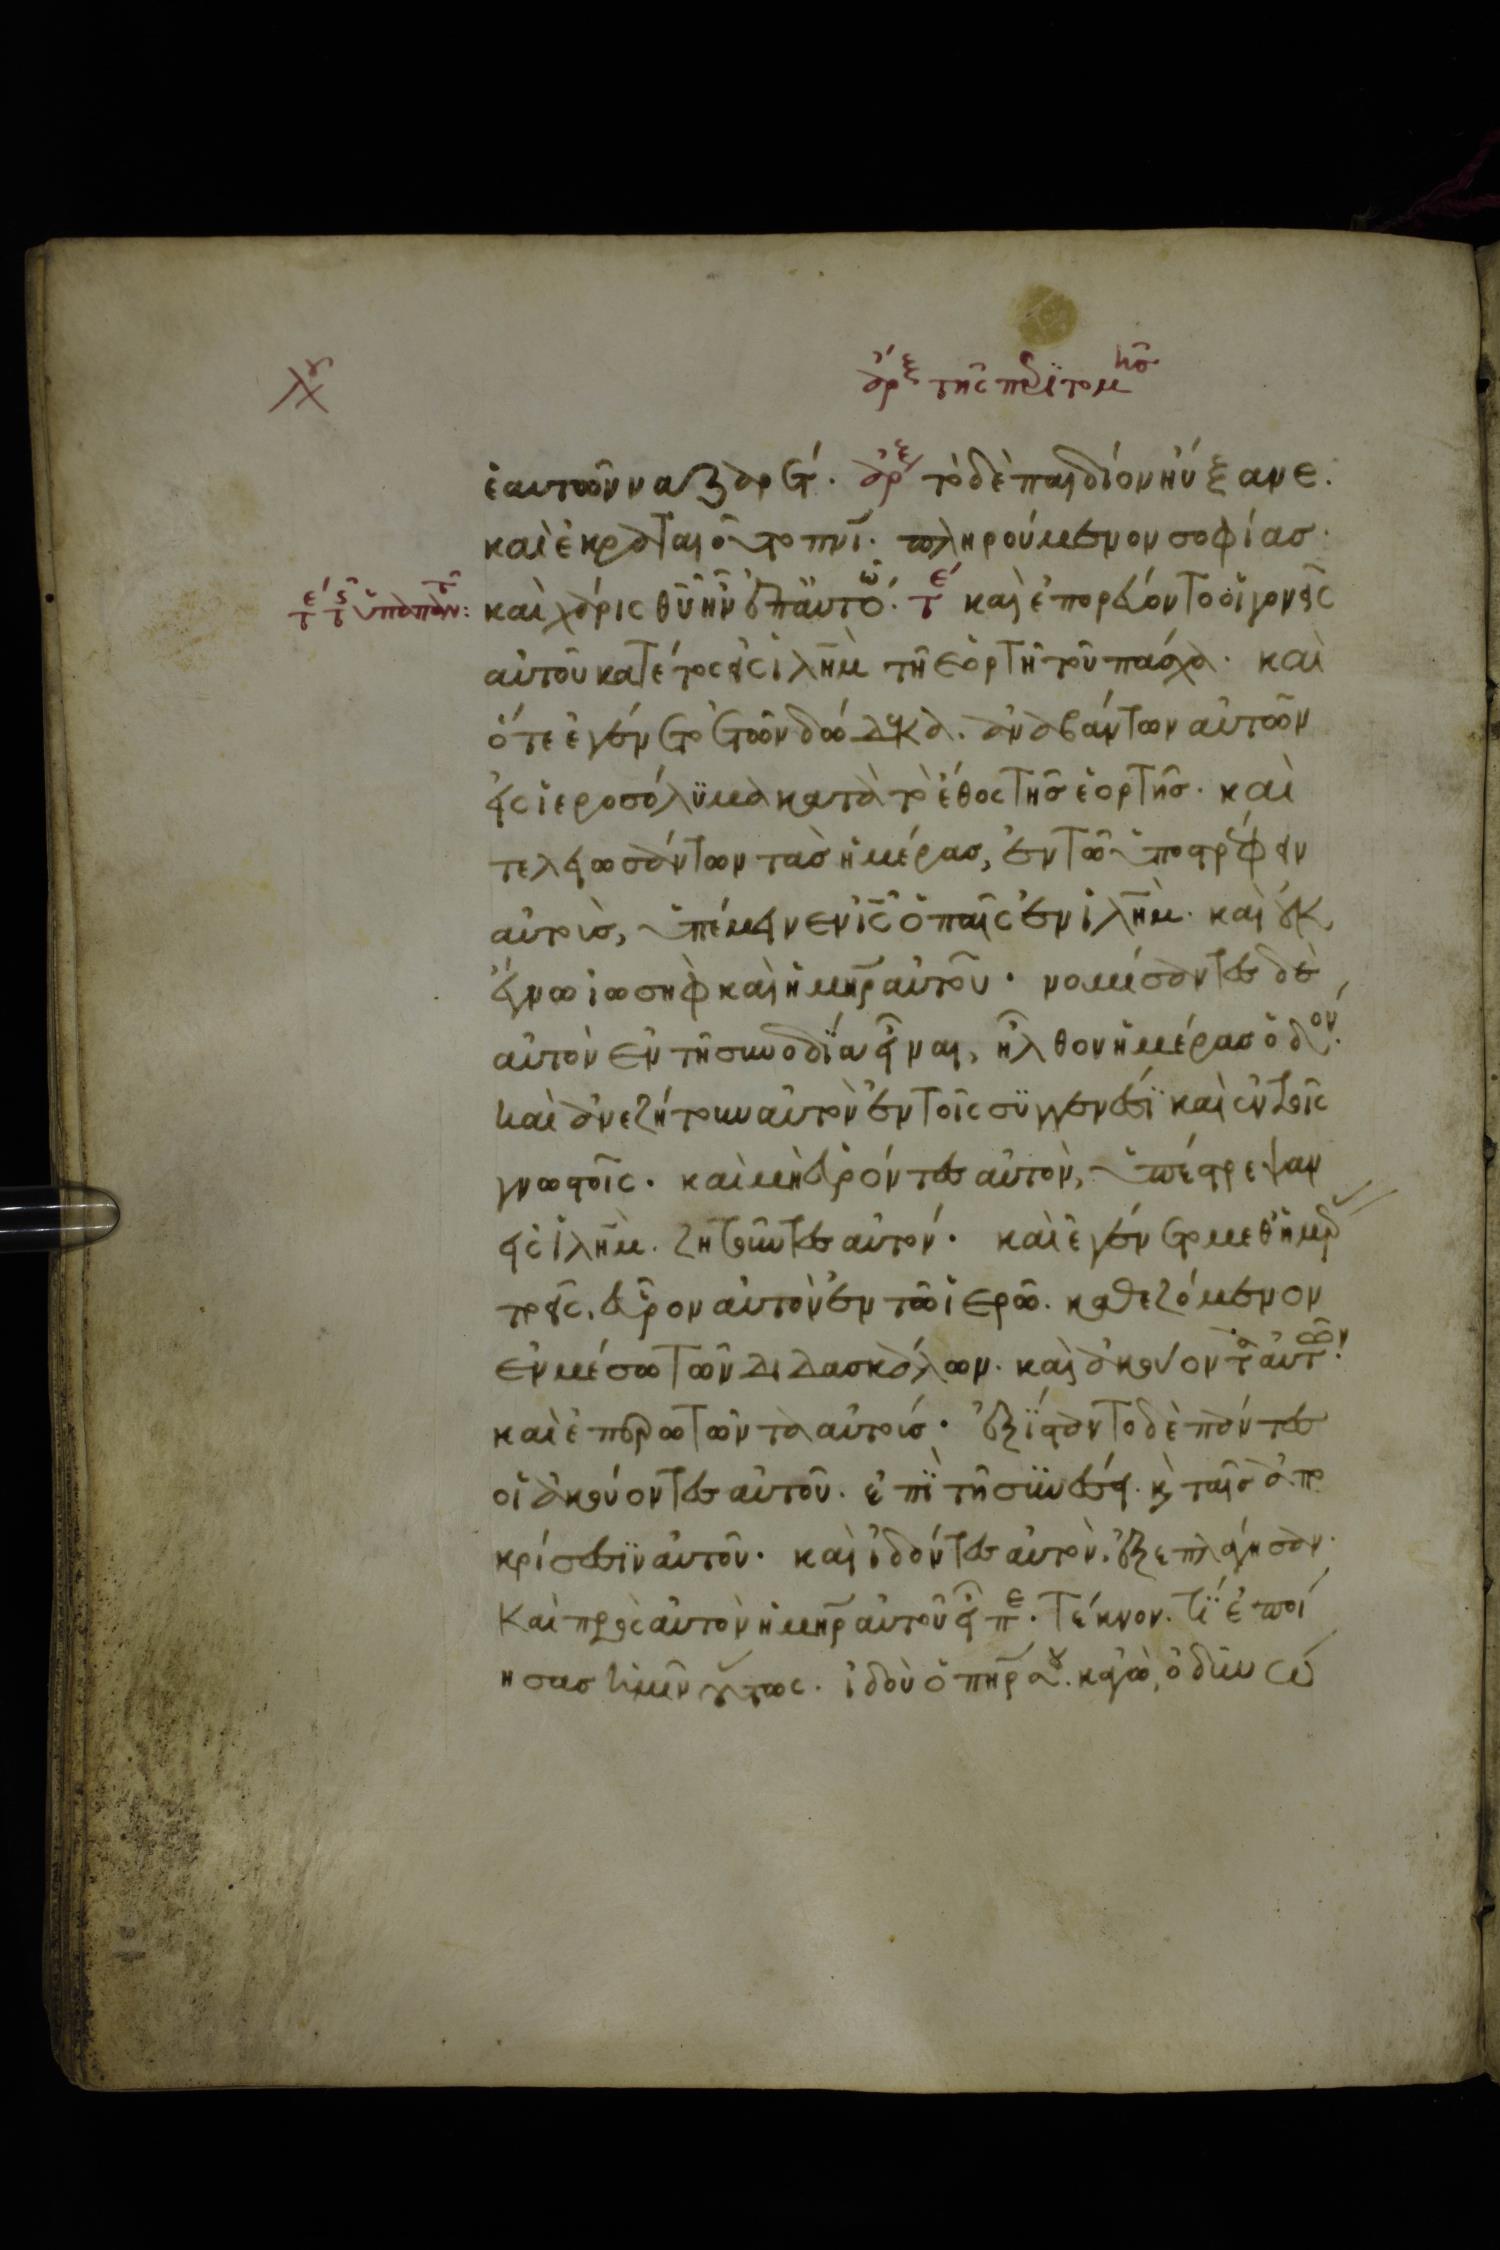 ἀρξ τῆς περιτομῆς
ἑαυτῶν ναζαρέτ. ἀρξ τὸ δὲ παιδίον ηὔξανε.
καὶ ἐκραταιοῦτο πνι. πληρούμενον σοφίας.
τε τ ὑπαπαντ:
καὶ χάρις θυ ἦν ἐπ αὐτό. τε καὶ ἐπορεύοντο οἱ γονεῖς
αὐτοῦ κατ έτος εἰς ιλημ τῆ ἑορτῆ τοῦ πάσχα. καὶ
ὅτε ἐγένετο ἐτῶν δώδεκα. ἀναβάντων αὐτῶν
εἰς ἱεροσόλυμα κατὰ τὸ ἔθος τῆς ἑορτῆς. καὶ
τελειωσάντων τὰς ἡμέρας, ἐν τῶ ὑποστρέφειν
αὐτοὺς, ὑπέμεινεν ις ὁ παῖς ἐν ιλημ. καὶ οὐκ
ἔγνω ἰωσὴφ καὶ ἡ μηρ αὐτοῦ. νομίσαντες δὲ
αὐτὸν ἐν τῆ συνοδία εἶναι, ἦλθον ἡμέρας ὁδόν.
καὶ ἀνεζήτουν αὐτὸν ἐν τοῖς συγγενέσι καὶ ἐν τοῖς
γνωστοῖς. καὶ μὴ εὑρόντες αὐτὸν, ὑπέστρεψαν
εἰς ιλημ. ζητοῦντες αὐτόν. καὶ ἐγένετο μεθ ἡμέρας
τρεῖς. εὗρον αὐτὸν ἐν τῶ ἱερῶ. καθεζόμενον
ἐν μέσω τῶν διδασκάλων. καὶ ἀκούοντα αὐτῶν.
καὶ ἐπερωτῶντα αὐτούς. ἐξίσταντο δὲ πάντες
οἱ ἀκούοντες αὐτοῦ. ἐπὶ τῆ συνέσει. κ ταῖς ἀπο
κρίσεσιν αὐτοῦ. καὶ ἰδόντες αὐτὸν. ἐξεπλάγησαν.
Καὶ πρὸς αὐτὸν ἡ μηρ αὐτοῦ εἶπε. τέκνον. τί ἐποί
ησας ἡμῖν οὕτως. ἰδοὺ ὁ πηρ σου. κἀγὼ, ὀδυνώ